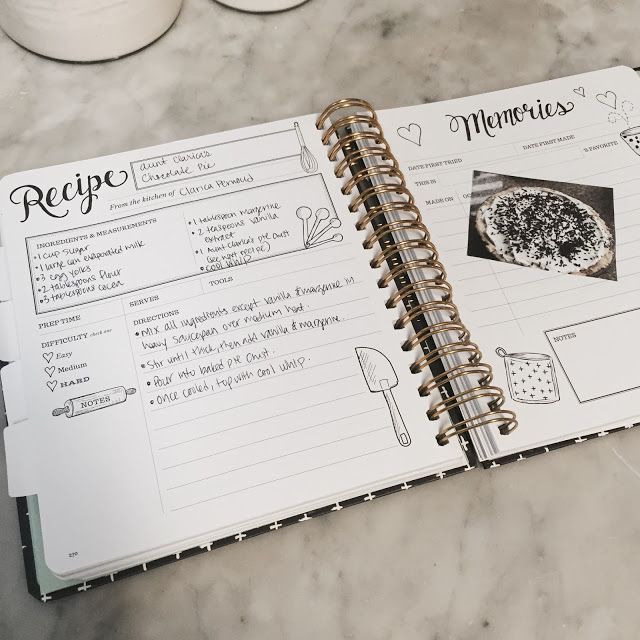 Recipe
aunt Clarica's
Chocolate Pie
From the kitchen of Clarica Pernoud
INGREDIENTS & MEASUREMENTS
• 1 cup sugar
• 1 large can evaporated milk
• 3 egg yolks
• 2 tablespoons flour
• 3 tablespoons cocoa
• 1 tablespoon margarine
• 2 teaspoons vanilla
extract
• 1 aunt clarica's pie crust
(see next recipe)
• cool whip
PREP TIME
SERVES
TOOLS
DIFFICULTY check one
Easy
Medium
HARD
NOTES
DIRECTIONS
• Mix all ingredients except vanilla & margarine in
heavy saucepan over medium heat.
• Stir until thick, then add vanilla & margarine.
• Pour into baked pie crust.
• Once cooled, top with cool whip.
270
Memories
DATE FIRST TRIED
DATE FIRST MADE
'S FAVORITE
THIS IS
MADE ON
NOTES